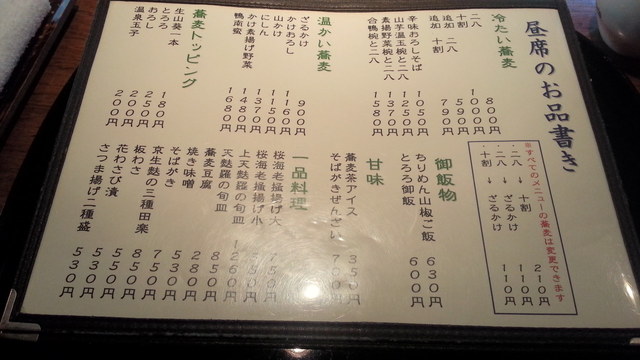 昼席のお品書き
※すべてのメニューの蕎麦は変更できます
・二八 → 十割 210円
・二八 → ざるかけ 110円
・十割 → ざるかけ 110円
冷たい蕎麦
二八 800円
十割 1000円
追加 二八 590円
追加 十割 790円
辛味おろしそば 1050円
山芋温玉椀と二八 1250円
素揚野菜椀と二八 1370円
合鴨椀と二八 1580円
温かい蕎麦
ざるかけ 900円
かけおろし 1160円
山かけ 1150円
にしん 1370円
かけ素揚げ野菜 1480円
鴨南蛮 1680円
蕎麦トッピング
生山葵一本 180円
とろろ 250円
おろし 200円
温泉玉子 200円
御飯物
ちりめん山椒ご飯 630円
とろろ御飯 600円
甘味
蕎麦茶アイス 350円
そばがきぜんざい 700円
一品料理
桜海老掻揚げ大
桜海老掻揚げ小
上天麩羅の旬皿
天麩羅の旬皿
蕎麦豆腐
焼き味噌 280円
そばがき 530円
京生麩の三種田楽 750円
板わさ 850円
花わさび漬 550円
さつま揚げ二種盛 530円